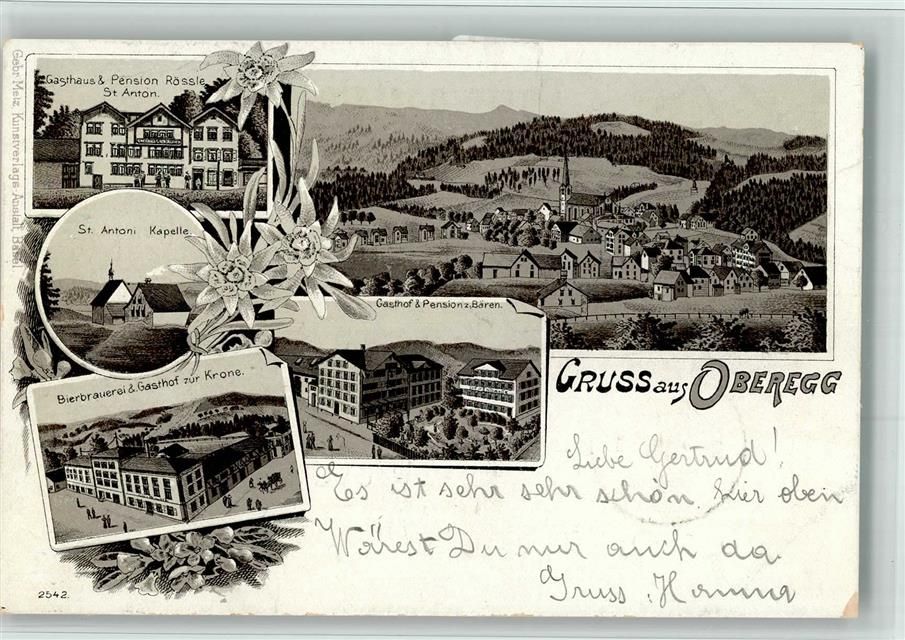 Gebr. Metz, Kunstverlags-Anstalt, Basel.
Gasthaus & Pension Rössle
St. Anton.
St. Antoni Kapelle.
Gasthof & Pension z. Bären.
Bierbrauerei & Gasthof zur Krone.
GRUSS aus OBEREGG
Liebe Gertrud!
Es ist sehr sehr schön hier oben
Wärest Du nur auch da.
Gruss Hanna
2542.